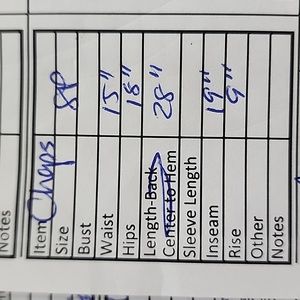 Notes
Item Chaps
Size
Bust
Waist 15"
Hips 18"
Length-Back 28"
Center to Hem
Sleeve Length
Inseam 19"
Rise 9"
Other
Notes